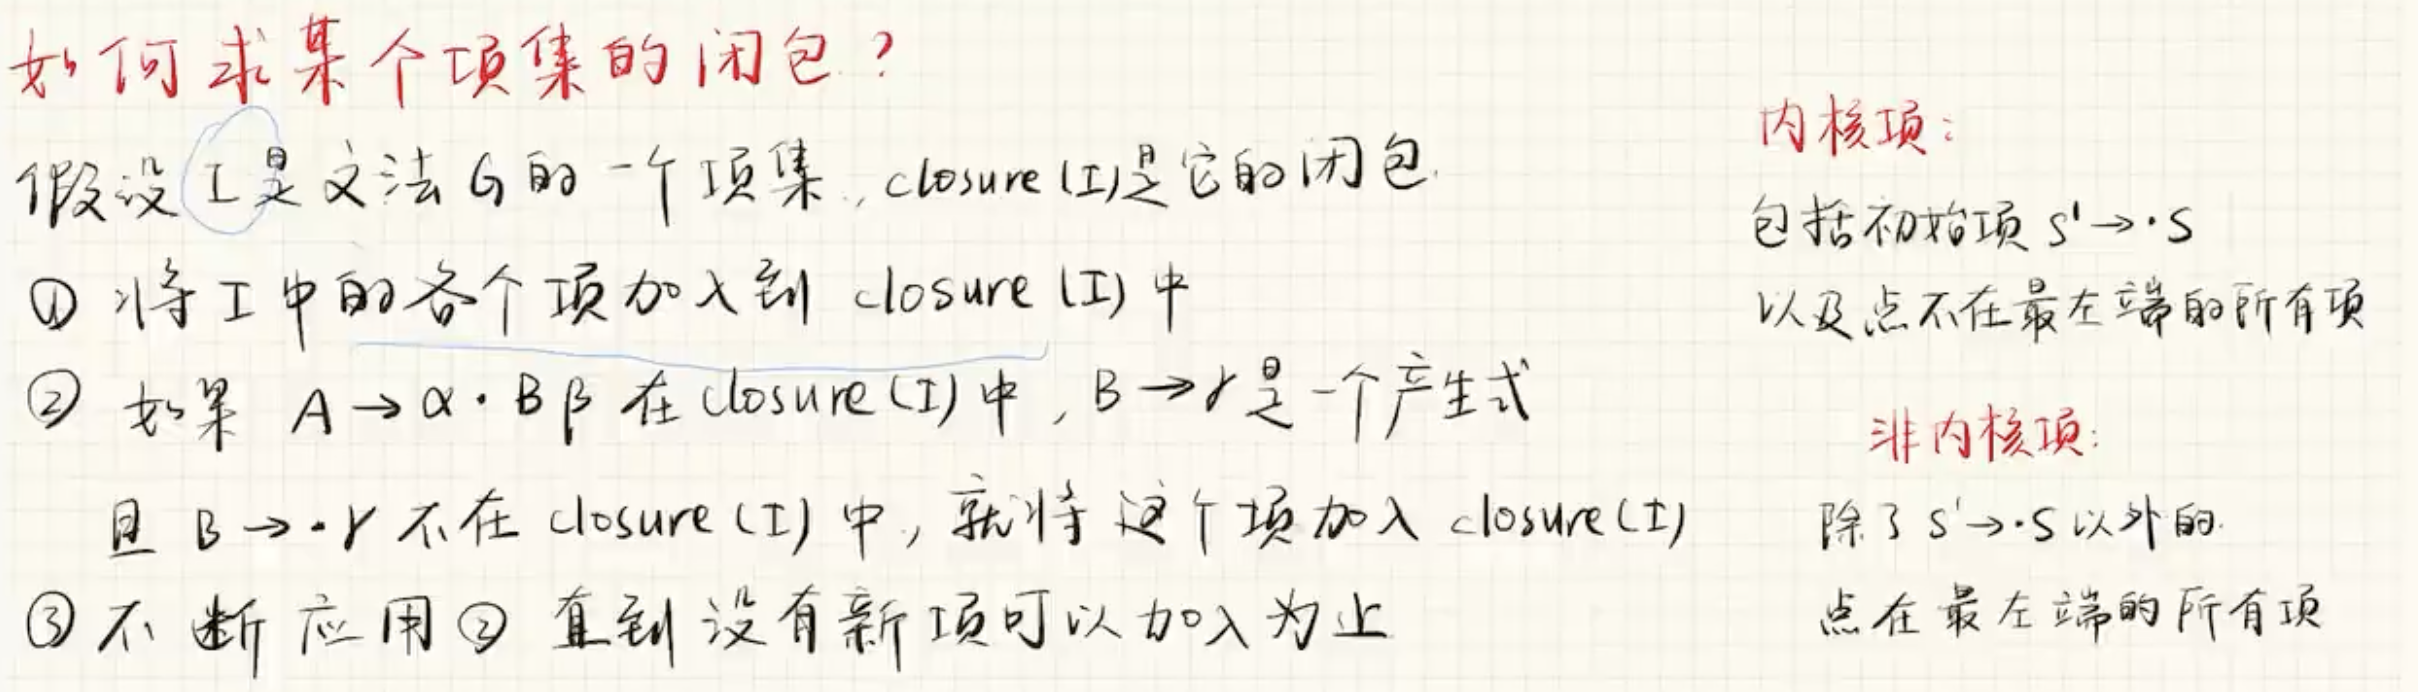 如何求某个项集的闭包？
假设I是文法G的一个项集，closure(I)是它的闭包.
① 将I中的各个项加入到 closure(I)中
② 如果 A→α·Bβ 在closure(I)中，B→γ是一个产生式
且 B→·γ 不在closure(I)中，就将这个项加入closure(I)
③ 不断应用② 直到没有新项可以加入为止
内核项：
包括初始项 S'→·S
以及点不在最左端的所有项
非内核项：
除了S'→·S以外的
点在最左端的所有项